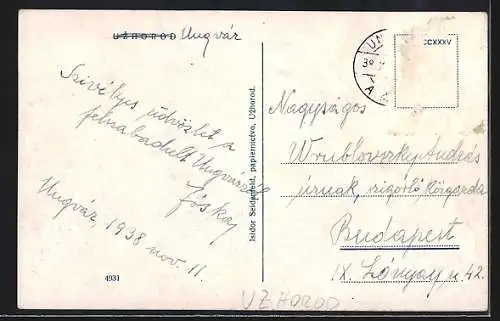 UŽHOROD Ungvár
Szivélyes üdvözlet a
felszabadult Ungvárról
Jóskay
Ungvár, 1938 nov. 11.
4931
Isidor Seidenfeld, papiernictvo, Užhorod.
UN
38
A
CCXXXV
Nagyságos
Wrublovszky András
úrnak, szigorló
Budapest
IX. Lónyay u 42.
UZHOROD